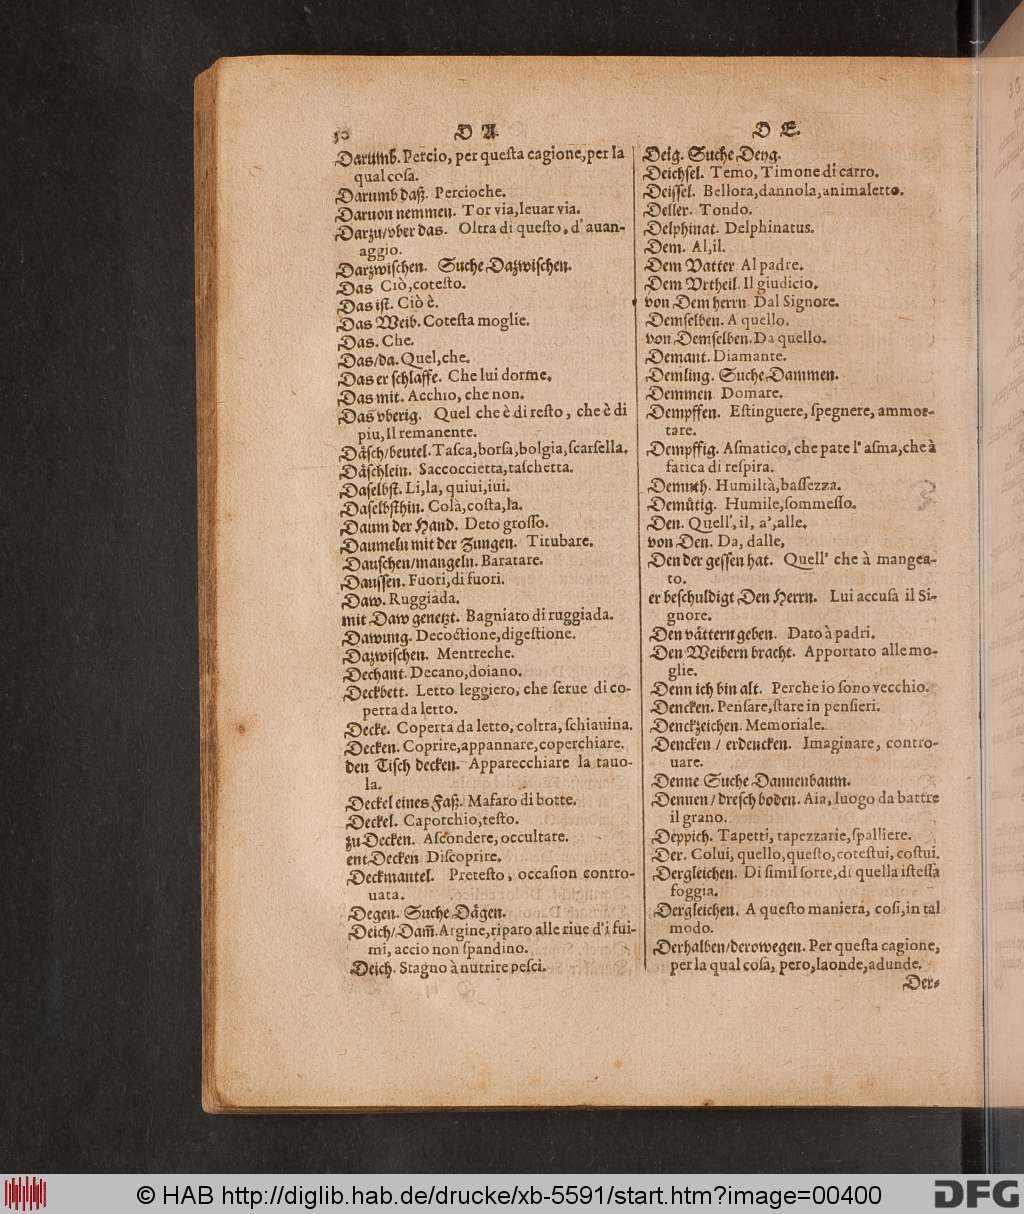 50 D A.
Darumb. Percio, per questa cagione, per la
qual cosa.
Darumb daß. Percioche.
Daruon nemmen. Tor via, leuar via.
Darzu/vber das. Oltra di questo, d'auan-
aggio.
Darzwischen. Suche Dazwischen.
Das Ciò, cotesto.
Das ist. Ciò è.
Das Weib. Cotesta moglie.
Das. Che.
Das/da. Quel, che.
Das er schlaffe. Che lui dorme.
Das mit. Acchio, che non.
Das vberig. Quel che è di resto, che è di
piu, Il remanente.
Däsch/beutel. Tasca, borsa, bolgia, scarsella.
Däschlein. Saccoccietta, taschetta.
Daselbst. Li, la, quiui, iui.
Daselbsthin. Colà, costa, la.
Daum der Hand. Deto grosso.
Daumeln mit der Zungen. Titubare.
Dauschen/mangeln. Baratare.
Daussen. Fuori, di fuori.
Daw. Ruggiada.
mit Daw genetzt. Bagniato di ruggiada.
Dawung. Decoctione, digestione.
Dazwischen. Mentreche.
Dechant. Decano, doiano.
Deckbett. Letto leggiero, che serue di co-
perta da letto.
Decke. Coperta da letto, coltra, schiauina.
Decken. Coprire, appannare, coperchiare.
den Tisch decken. Apparecchiare la tauo-
la.
Deckel eines Faß. Mafaro di botte.
Deckel. Caporchio, testo.
zu Decken. Ascondere, occultare.
ent Decken Discoprire.
Deckmantel. Pretesto, occasion contro-
uata.
Degen. Suche Dägen.
Deich/Dam̃. Argine, riparo alle riue d'i fui-
mi, accio non spandino.
Deich. Stagno à nutrire pesci.
D E.
Deig. Suche Deyg.
Deichsel. Temo, Timone di carro.
Deissel. Bellora, dannola, animaletto.
Deller. Tondo.
Delphinat. Delphinatus.
Dem. Al, il.
Dem Vatter Al padre.
Dem Vrtheil. Il giudicio.
von Dem herrn Dal Signore.
Demselben. A quello.
von Demselben. Da quello.
Demant. Diamante.
Demling. Suche Dammen.
Demmen Domare.
Dempffen. Estinguere, spegnere, ammor-
tare.
Dempffig. Asmatico, che pate l'asma, che à
fatica di respira.
Demuth. Humiltà, bassezza.
Demůtig. Humile, sommesso.
Den. Quell', il, a', alle.
von Den. Da, dalle,
Den der gessen hat. Quell' che à mangea-
to.
er beschuldigt Den Herrn. Lui accusa il Si-
gnore.
Den vättern geben. Dato à padri.
Den Weibern bracht. Apportato alle mo-
glie.
Denn ich bin alt. Perche io sono vecchio.
Dencken. Pensare, stare in pensieri.
Denckzeichen. Memoriale.
Dencken / erdencken. Imaginare, contro-
uare.
Denne Suche Dannenbaum.
Dennen/dresch boden. Aia, luogo da battre
il grano.
Deppich. Tapetti, tapezzarie, spalliere.
Der. Colui, quello, questo, cotestui, costui.
Dergleichen. Di simil sorte, di quella istessa
foggia.
Dergleichen. A questo maniera, cosi, in tal
modo.
Derhalben/derowegen. Per questa cagione,
per la qual cosa, pero, laonde, adunde.
Der-
© HAB http://diglib.hab.de/drucke/xb-5591/start.htm?image=00400
DFG